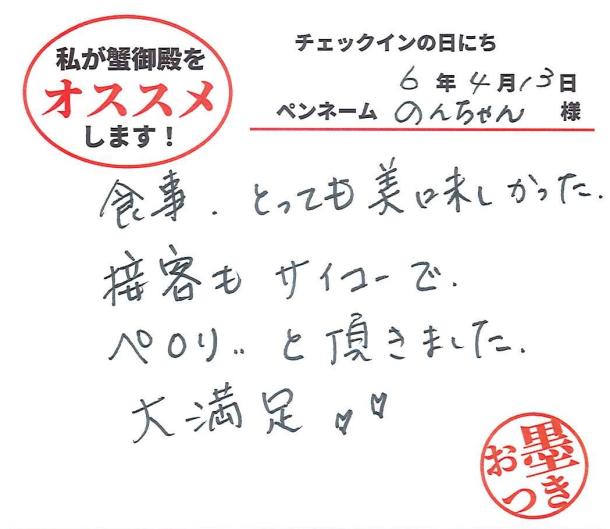 私が蟹御殿を
オススメ
します！
チェックインの日にち
6年4月13日
ペンネーム のんちゃん 様
食事、とっても美味しかった。
接客もサイコーで、
ペロリ‥と頂きました。
大満足♡♡
お墨つき